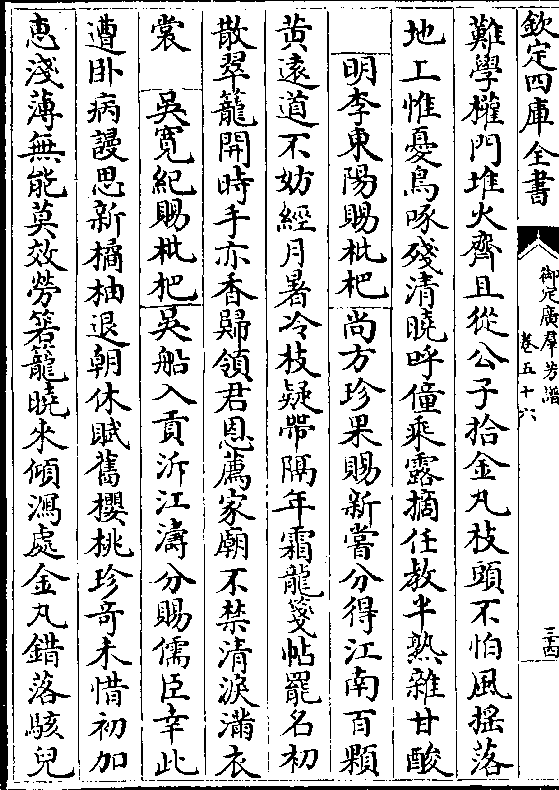 欽定四庫全書
御定廣羣芳譜
卷五十六
三十四
難學權門堆火齊且從公子拾金丸枝頭不怕風揺落
地上惟憂鳥啄殘清曉呼僮乘露摘任教半熟雜甘酸
明李東陽賜枇杷尚方珍果賜新嘗分得江南百顆
黄遠道不妨經月暑冷枝疑帶隔年霜龍箋帖罷名初
散翠籠開時手亦香歸領君恩薦家廟不禁清淚滿衣
裳吳寛紀賜枇杷吳船入貢泝江濤分賜儒臣幸此
遭卧病謾思新橘柚退朝休賦舊櫻桃珍奇未惜初加
恵淺薄無能莫效勞箬籠曉來傾瀉處金丸錯落駭兒